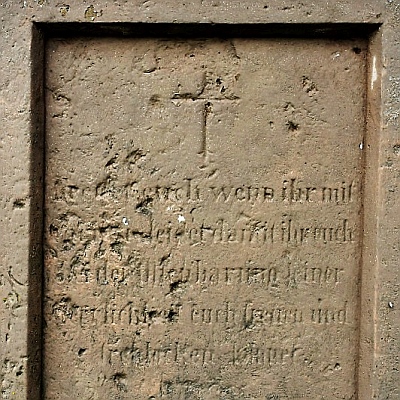 Freuet euch wenn ihr mit
leidet damit ihr euch
der Offenbarung seiner
Herrlichkeit euch freuen und
frohlocken